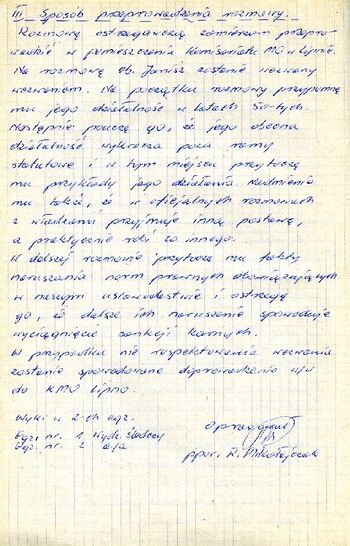 III Sposób przeprowadzenia rozmowy.
Rozmowę ostrzegawczą zamierzam przepro-
wadzić w pomieszczeniu Komisariatu MO w Lipnie.
Na rozmowę ob. Janisz zostanie wezwany
wezwaniem. Na początku rozmowy przypomnę
mu jego działalność w latach 50-tych.
Następnie pouczę go, że jego obecna
działalność wykracza poza ramy
statutowe i w tym miejscu przytoczę
mu przykłady jego działania. Nadmienię
mu także, że w oficjalnych rozmowach
z władzami przyjmuje inną postawę,
a praktycznie robi co innego.
W dalszej rozmowie przytoczę mu fakty
naruszania norm prawnych obowiązujących
w naszym ustawodawstwie i ostrzegę
go, że dalsze ich naruszenie spowoduje
wyciągnięcie sankcji karnych.
W przypadku nie respektowania wezwania
zostanie spowodowane doprowadzenie w/w
do KMO Lipno.
Wyk. w 2-ch egz.
Egz. nr. 1 Wydz. Śledczy
Egz. nr. 2 a/a
Opracował
ppor. R. Mikołajczak